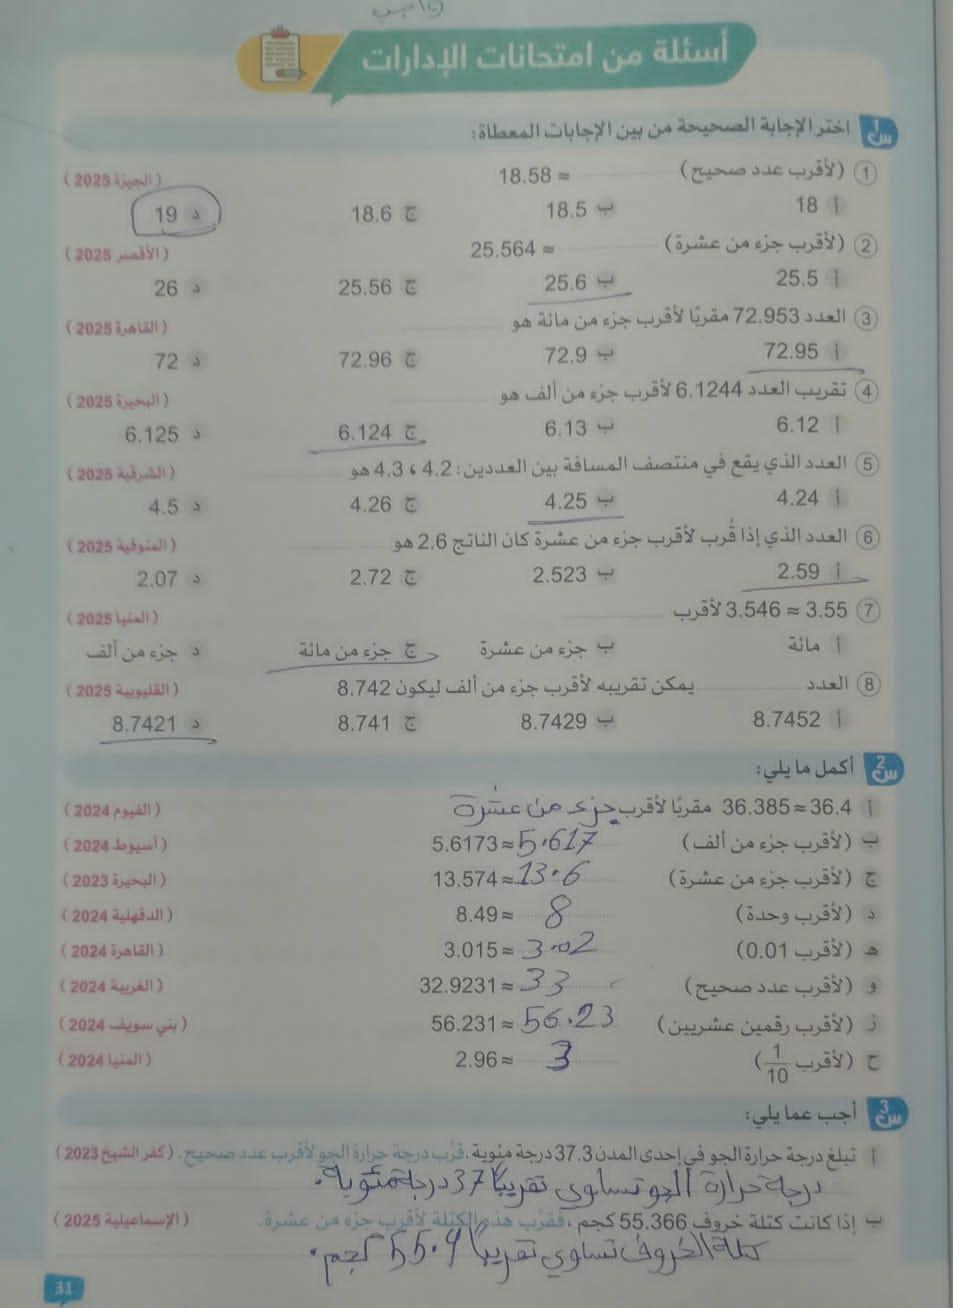 واجب
أسئلة من امتحانات الإدارات
س1 اختر الإجابة الصحيحة من بين الإجابات المعطاة:
1 (لأقرب عدد صحيح) ............ ≈ 18.58 (الجيزة 2025)
أ 18 ب 18.5 ج 18.6 د 19
2 (لأقرب جزء من عشرة) ............ ≈ 25.564 (الأقصر 2025)
أ 25.5 ب 25.6 ج 25.56 د 26
3 العدد 72.953 مقربًا لأقرب جزء من مائة هو ............ (القاهرة 2025)
أ 72.95 ب 72.9 ج 72.96 د 72
4 تقريب العدد 6.1244 لأقرب جزء من ألف هو ............ (البحيرة 2025)
أ 6.12 ب 6.13 ج 6.124 د 6.125
5 العدد الذي يقع في منتصف المسافة بين العددين: 4.2 ، 4.3 هو ............ (الشرقية 2025)
أ 4.24 ب 4.25 ج 4.26 د 4.5
6 العدد الذي إذا قُرب لأقرب جزء من عشرة كان الناتج 2.6 هو ............ (المنوفية 2025)
أ 2.59 ب 2.523 ج 2.72 د 2.07
7 3.546 ≈ 3.55 لأقرب ............ (المنيا 2025)
أ مائة ب جزء من عشرة ج جزء من مائة د جزء من ألف
8 العدد ............ يمكن تقريبه لأقرب جزء من ألف ليكون 8.742 (القليوبية 2025)
أ 8.7452 ب 8.7429 ج 8.741 د 8.7421
س2 أكمل ما يلي:
أ 36.385 ≈ 36.4 مقربًا لأقرب جزء من عشرة (الفيوم 2024)
ب (لأقرب جزء من ألف) 5.6173 ≈ 5.617 (أسيوط 2024)
ج (لأقرب جزء من عشرة) 13.574 ≈ 13.6 (البحيرة 2023)
د (لأقرب وحدة) 8.49 ≈ 8 (الدقهلية 2024)
هـ (لأقرب 0.01) 3.015 ≈ 3.02 (القاهرة 2024)
و (لأقرب عدد صحيح) 32.9231 ≈ 33 (الغربية 2024)
ز (لأقرب رقمين عشريين) 56.231 ≈ 56.23 (بني سويف 2024)
ح (لأقرب 1/10) 2.96 ≈ 3 (المنيا 2024)
س3 أجب عما يلي:
أ تبلغ درجة حرارة الجو في إحدى المدن 37.3 درجة مئوية، قرّب درجة حرارة الجو لأقرب عدد صحيح. (كفر الشيخ 2023)
درجة حرارة الجو تساوي تقريبًا 37 درجة مئوية.
ب إذا كانت كتلة خروف 55.366 كجم، فقرّب هذه الكتلة لأقرب جزء من عشرة. (الإسماعيلية 2025)
كتلة الخروف تساوي تقريبًا 55.4 كجم.
31